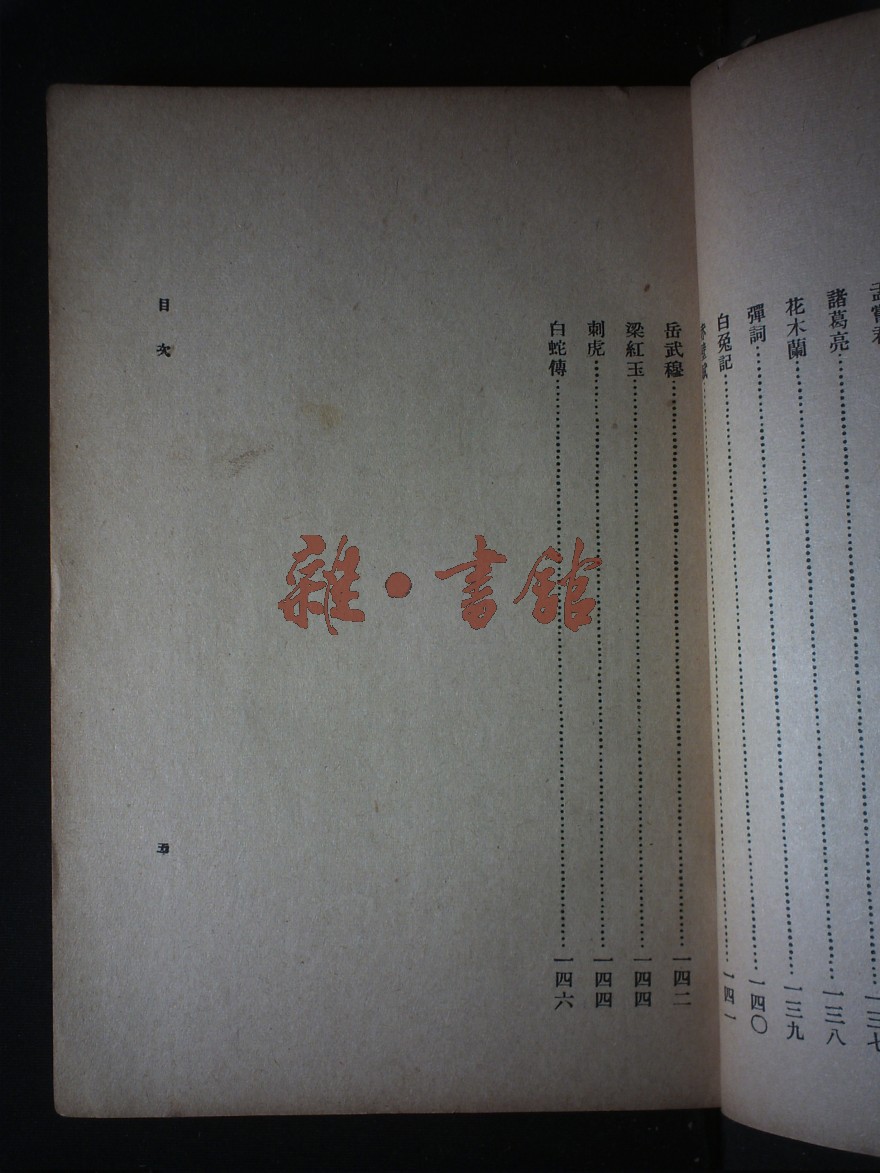 諸葛亮……一三八
花木蘭……一三九
彈詞……一四〇
白兔記……一四一
岳武穆……一四二
梁紅玉……一四四
刺虎……一四四
白蛇傳……一四六
目次
五
雜·書館